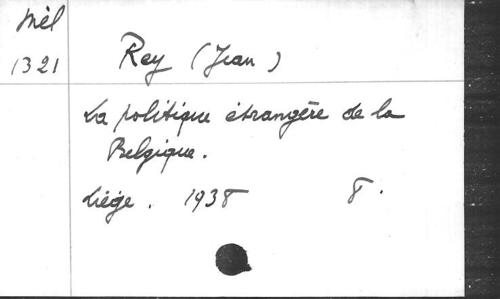 Mél
1321
Rey (Jean)
La politique étrangère de la
Belgique.
Liège. 1938 8.